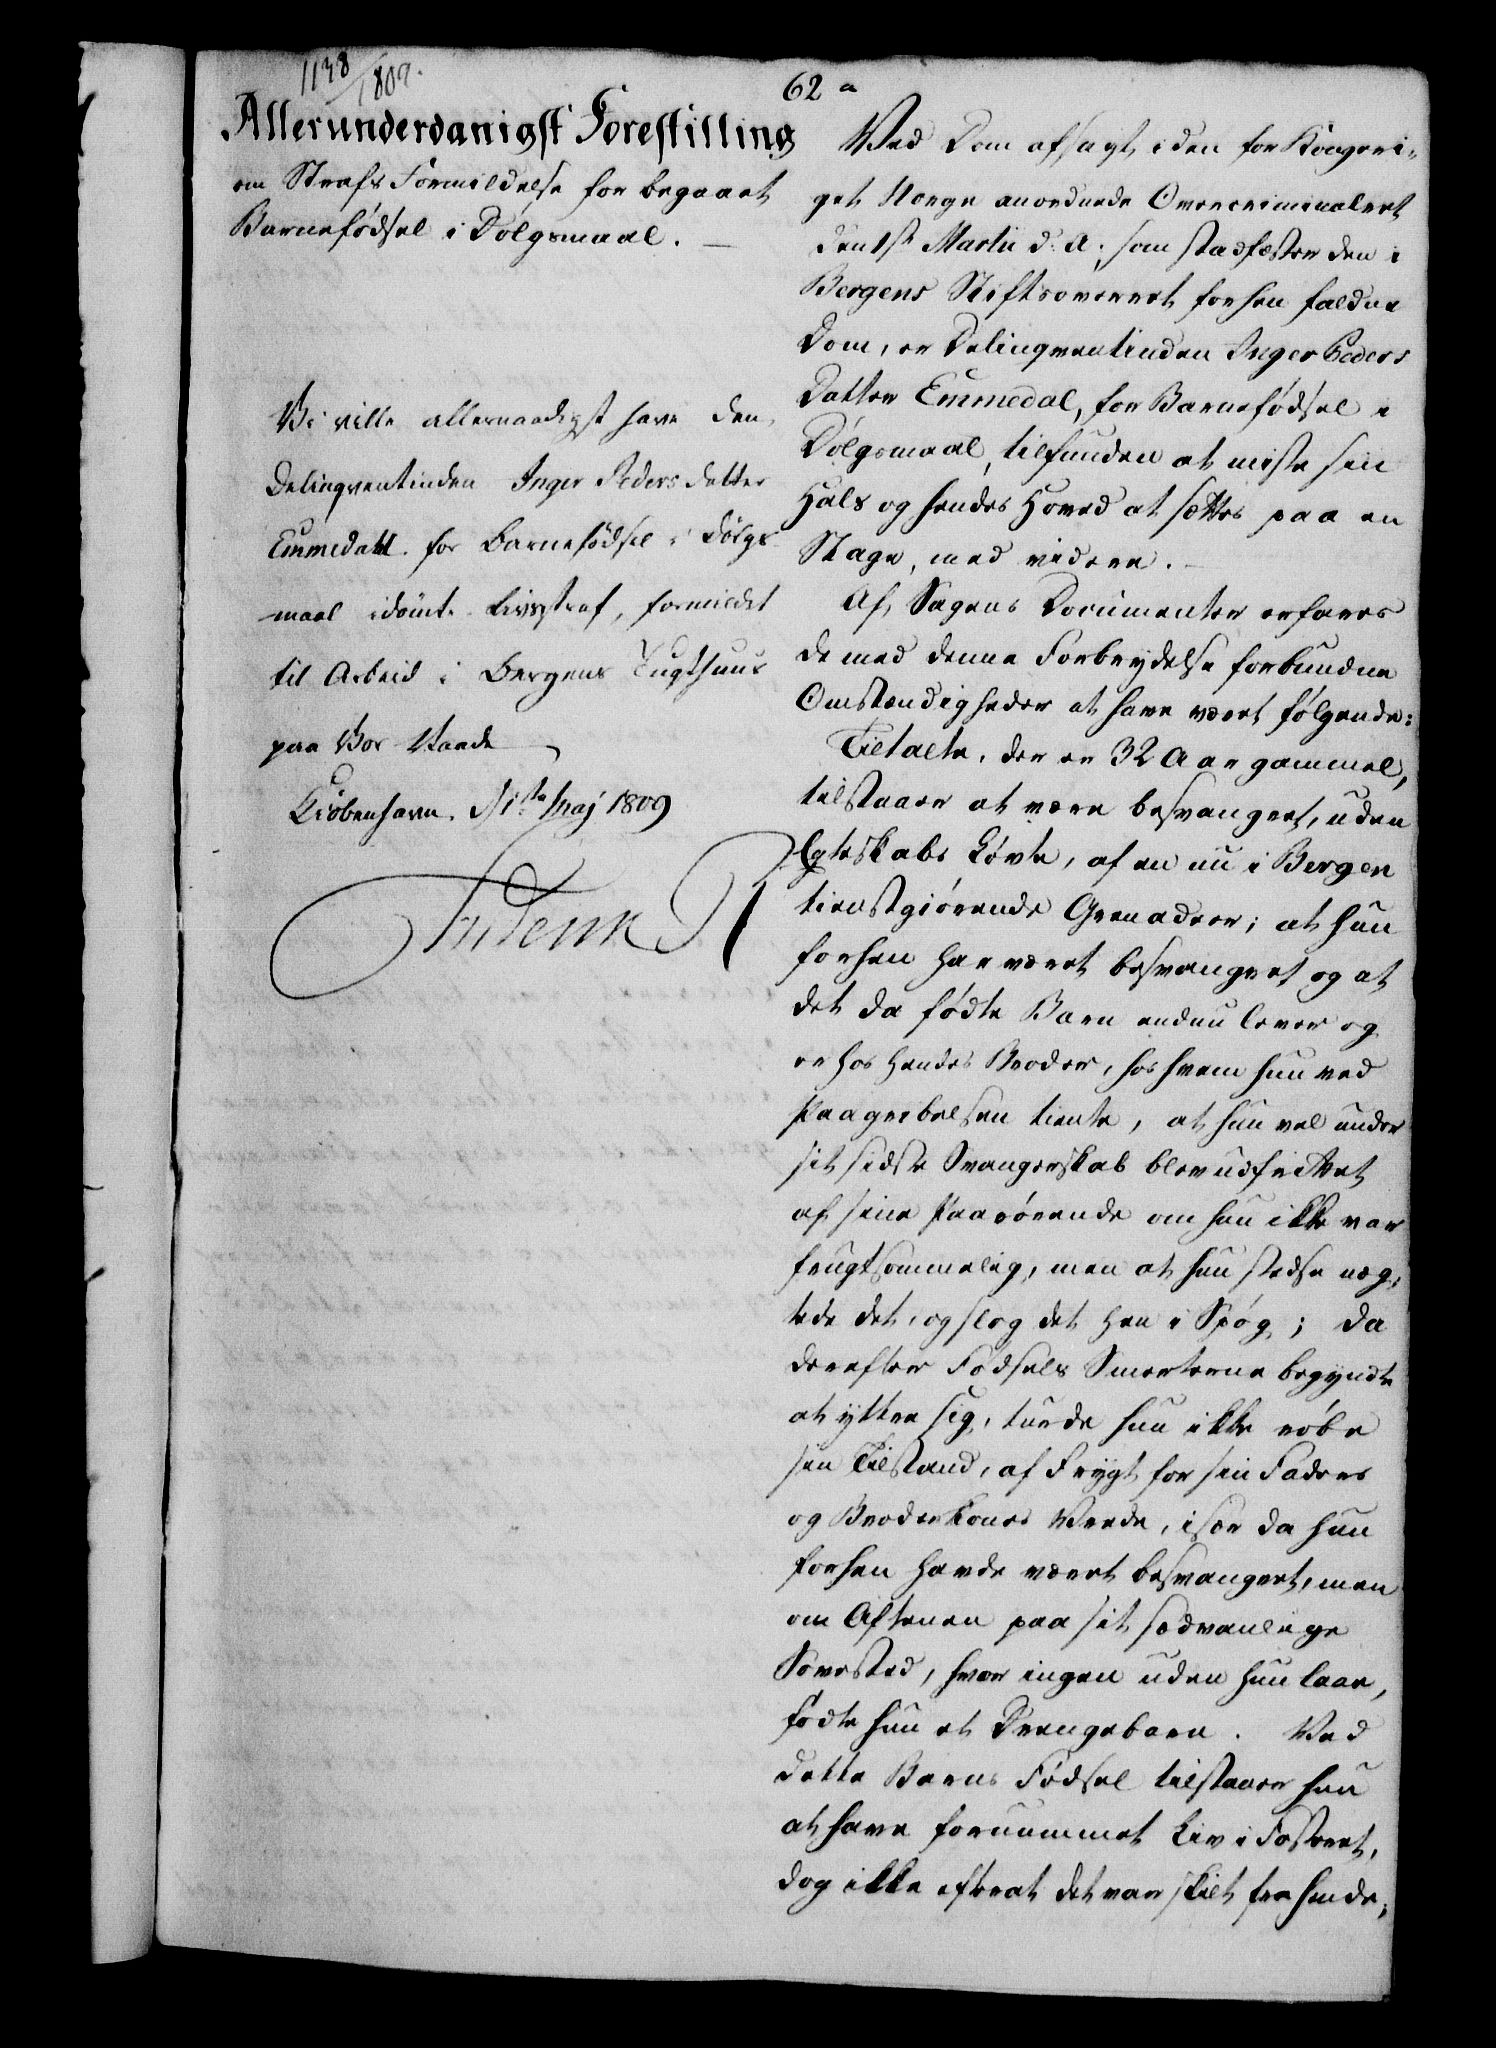 1138/1809.
62 a
Allerunderdanigst Forestilling
om Strafs Formildelse for begaaet
Barnefødsel i Dølgsmaal. —
Vi ville allernaadigst have den,
Delinqventinden Inger Peders datter
Emmedahl for Barnefødsel i Dølgs
maal idømte Livsstraf, formildet
til Arbeid i Bergens Tugthuus
paa Vor Naade
Kiøbenhavn, d 1ste Maj 1809
Frideric R
Ved Dom afsagt i den for Kongeri-
get Norge anordnede Overcriminalret
den 1ste Martii d: A: som stadfæster den i
Bergens Stiftsoverret forhen faldne
Dom, er Delinqventinden Inger Peders
Datter Emmedal, for Barnefødsel i
Dølgsmaal, tilfunden at miste sin
Hals og hendes Hoved at sættes paa en
Stage, med videre. —
Af Sagens Documenter erfares
de med denne Forbrydelse forbundne
Omstændigheder at have været følgende:
Tiltalte, der er 32 Aar gammel,
tilstaaer at være besvangret, uden
Egteskabs Løvte, af en nu i Bergen
tienstgiørende Grenadeer; at hun
forhen har været besvangret og at
det da fødte Barn endnu lever og
er hos hendes Broder, hos hvem hun ved
Paagribelsen tiente, at hun vel under
sit sidste Svangerskab blev udfrittet
af sine Paarørende om hun ikke var
frugtsommelig, men at hun stedse næg-
tede det, og slog det hen i Spøg; da
derefter Fødsels Smerterne begyndte
at yttre sig, turde hun ikke røbe
sin Tilstand, af Frygt for sin Faders
og Broderkones Vrede, især da hun
forhen havde været besvangret, men
om Aftenen paa sit sædvanlige
Sovested, hvor ingen uden hun laae,
fødte hun et Drengebarn. Ved
dette Barns Fødsel tilstaaer hun
at have fornummet Liv i Fosteret,
dog ikke efterat det var skilt fra hende;